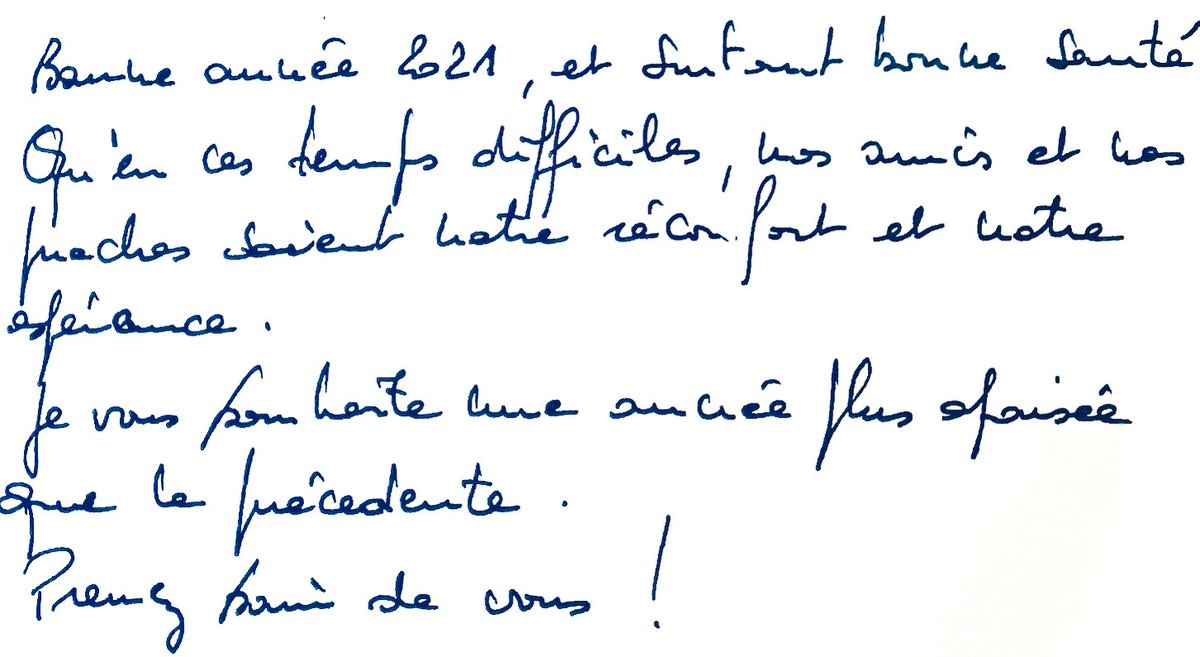 Bonne année 2021, et surtout bonne santé
Qu'en ces temps difficiles, nos amis et nos
proches soient notre réconfort et notre
espérance.
Je vous souhaite une année plus apaisée
que la précédente.
Prenez soin de vous !